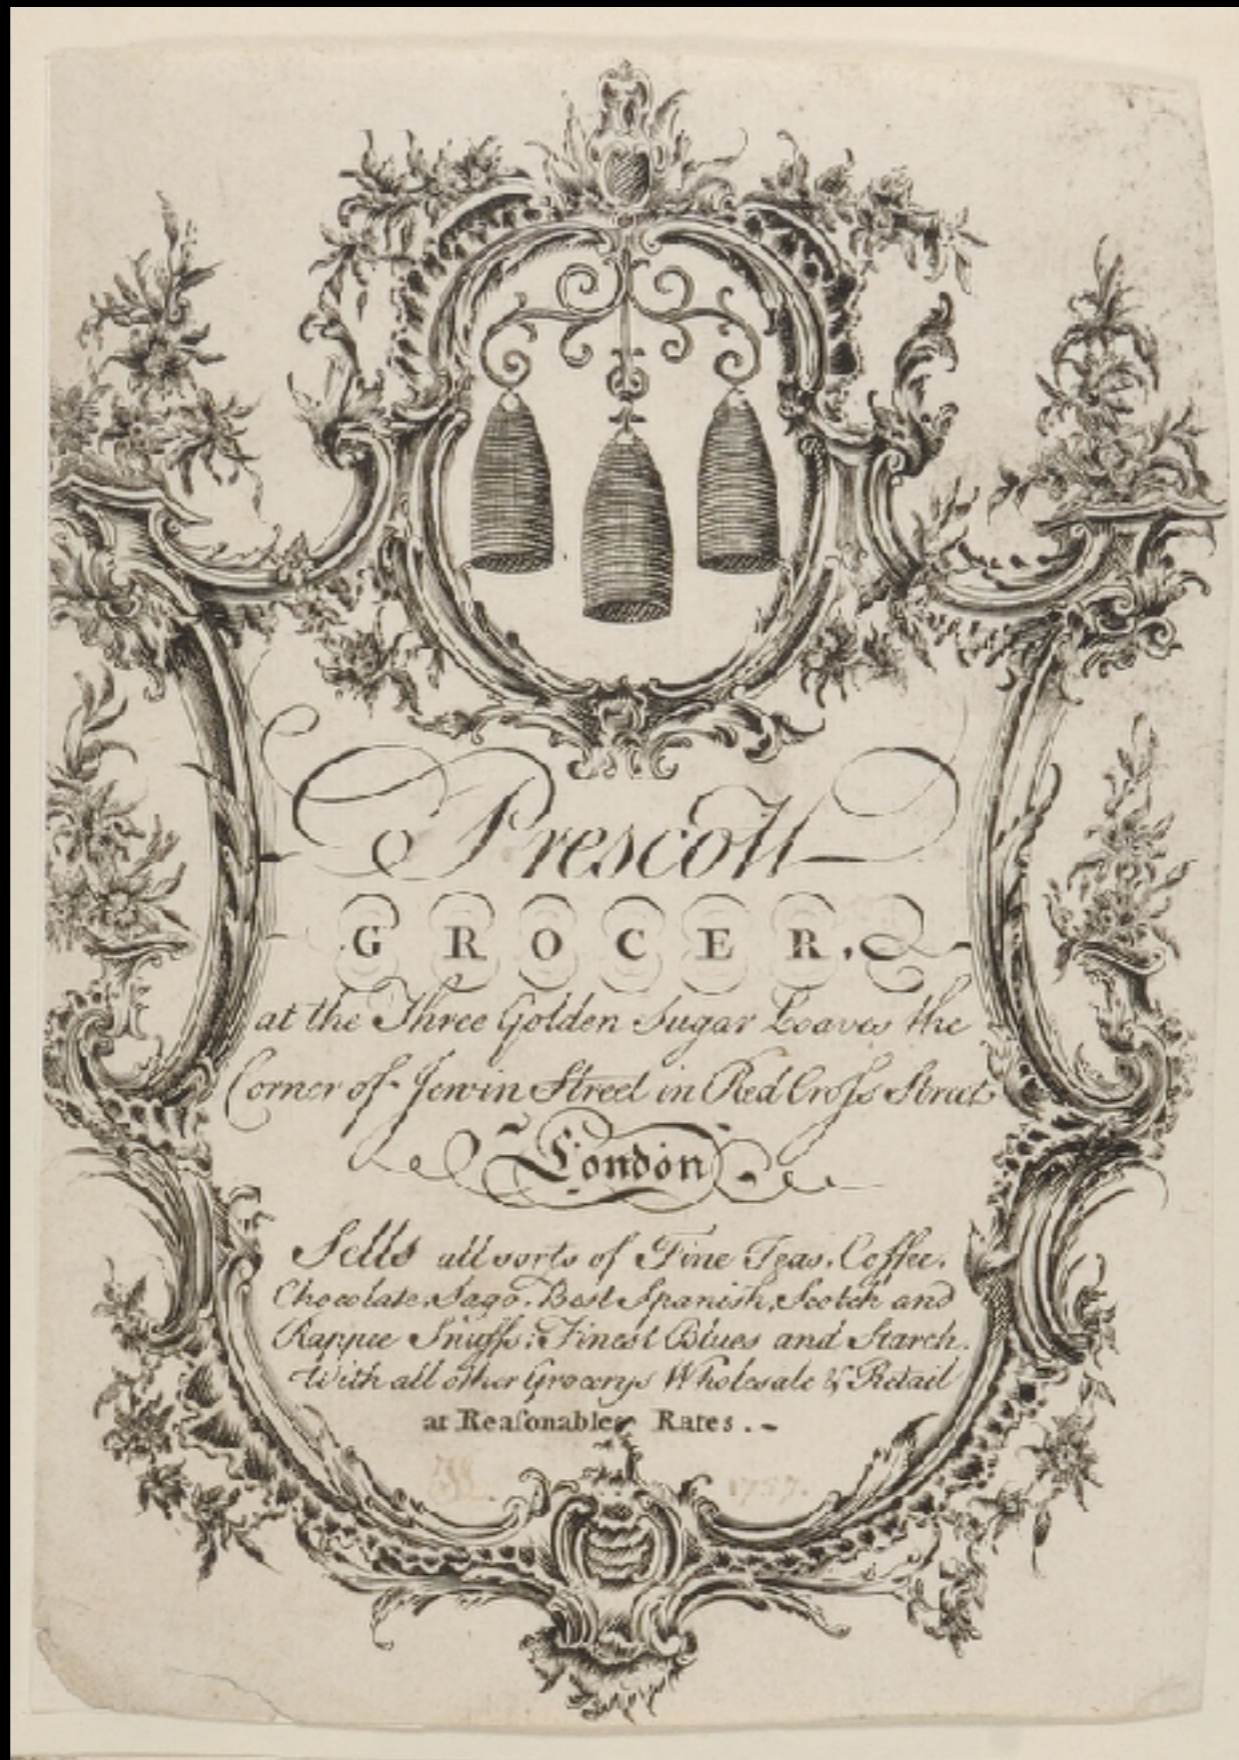 Prescott
GROCER.
at the Three Golden Sugar Loaves the
Corner of Jewin Street in Red Croſs Street
London
Sells all sorts of Fine Teas, Coffee,
Chocolate, Sago, Best Spanish, Scotch and
Rappee Snuffs; Finest Blues and Starch.
With all other Grocerys Wholesale & Retail
at Reaſonable Rates. -
1757.